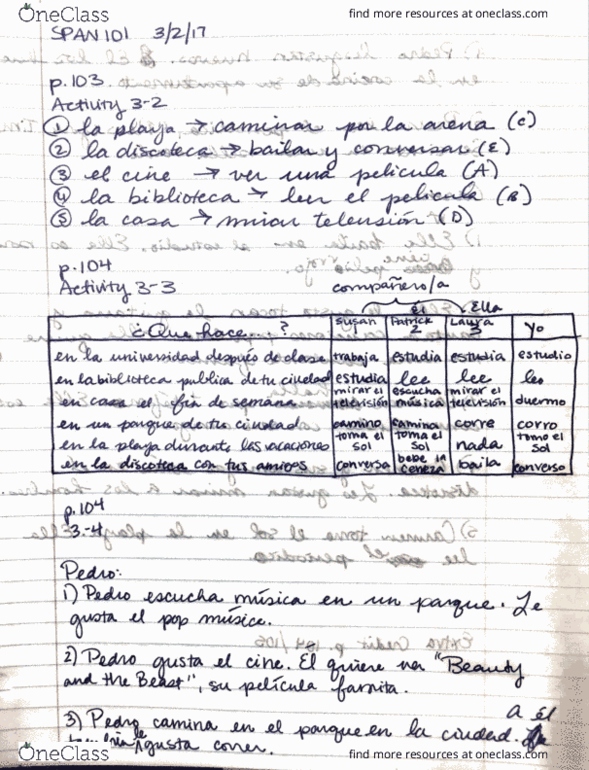 OneClass
find more resources at oneclass.com
SPAN 101 3/2/17
p.103
Activity 3-2
① la playa → caminar por la arena (C)
② la discoteca → bailar y conversar (E)
③ el cine → ver una pelicula (A)
④ la biblioteca → leer el pelicula (B)
⑤ la casa → mirar telensión (D)
p.104
Activity 3-3
compañero/a
él Ella
¿Que hace...? Susan Patrick 2 Laura 3 yo
en la universidad después de clase trabaja estudia estudia estudio
en la biblioteca publica de tu ciudad estudia lee lee leo
en casa el fin de semana mirar el televisión escucha música mirar el televisión duermo
en un parque de tu ciudad camino camina corre corro
en la playa durante las vacaciones toma el sol toma el sol nada tomo el sol
en la discoteca con tus amigos conversa bebe la baila converso
p.104
3-4
Pedro:
1) Pedro escucha música en un parque. Le
gusta el pop músice.
2) Pedro gusta el cine. El quiere "Beauty
and the Beast", su película
3) Pedro camina en el parque en la ciudad. a él
gusta correr.
OneClass
find more resources at oneclass.com